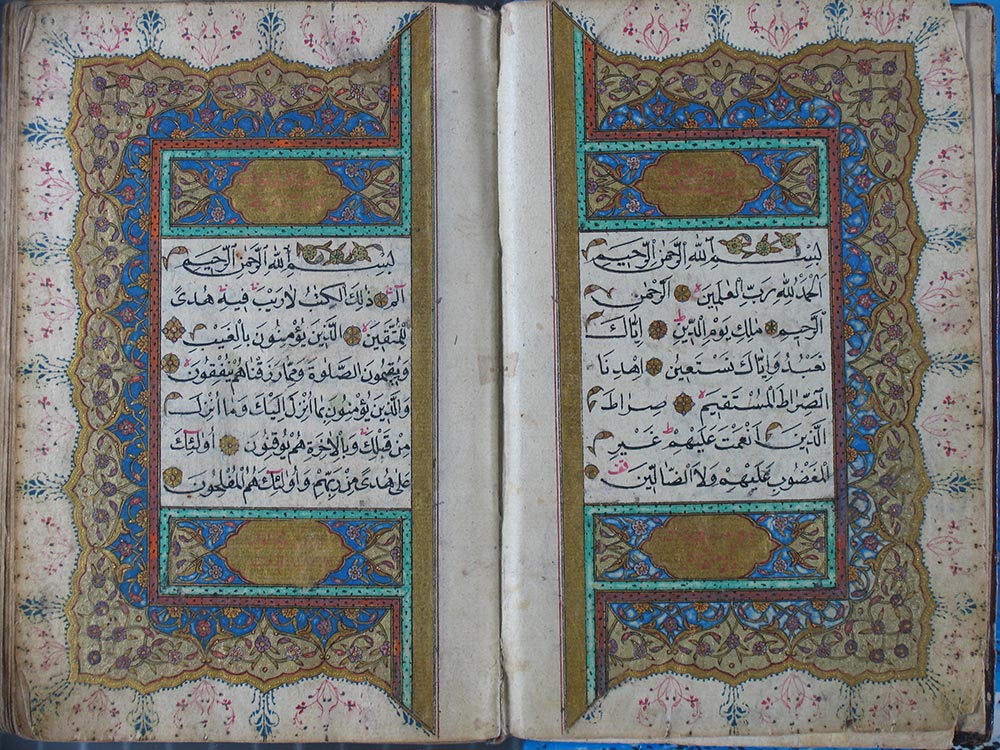 بِسْمِ اللهِ الرَّحْمٰنِ الرَّحِيمِ
اَلْحَمْدُ لِلّٰهِ رَبِّ الْعَالَمِينَ اَلرَّحْمٰنِ
الرَّحِيمِ مَلِكِ يَوْمِ الدِّينِ اِيَّاكَ
نَعْبُدُ وَاِيَّاكَ نَسْتَعِينُ اِهْدِنَا
الصِّرَاطَ الْمُسْتَقِيمَ صِرَاطَ
الَّذِينَ اَنْعَمْتَ عَلَيْهِمْ غَيْرِ
الْمَغْضُوبِ عَلَيْهِمْ وَلَا الضَّالِّينَ
بِسْمِ اللهِ الرَّحْمٰنِ الرَّحِيمِ
الٓمٓ ذٰلِكَ الْكِتَابُ لَا رَيْبَ فِيهِ هُدًى
لِلْمُتَّقِينَ اَلَّذِينَ يُؤْمِنُونَ بِالْغَيْبِ
وَيُقِيمُونَ الصَّلٰوةَ وَمِمَّا رَزَقْنَاهُمْ يُنْفِقُونَ
وَالَّذِينَ يُؤْمِنُونَ بِمَا اُنْزِلَ اِلَيْكَ وَمَا اُنْزِلَ
مِنْ قَبْلِكَ وَبِالْاٰخِرَةِ هُمْ يُوقِنُونَ اُولٰئِكَ
عَلٰى هُدًى مِنْ رَبِّهِمْ وَاُولٰئِكَ هُمُ الْمُفْلِحُونَ